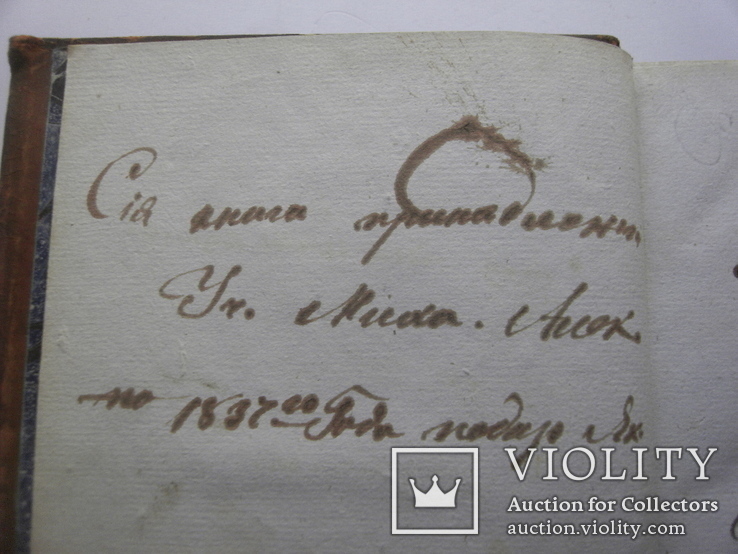 Сія книга принадлежи.
Уч. Миха. Алек.
1837го Года
VIOLITY
Auction for Collectors
auction.violity.com